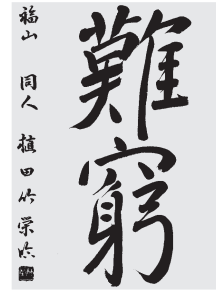 難窮
福山 同人 植田竹栄